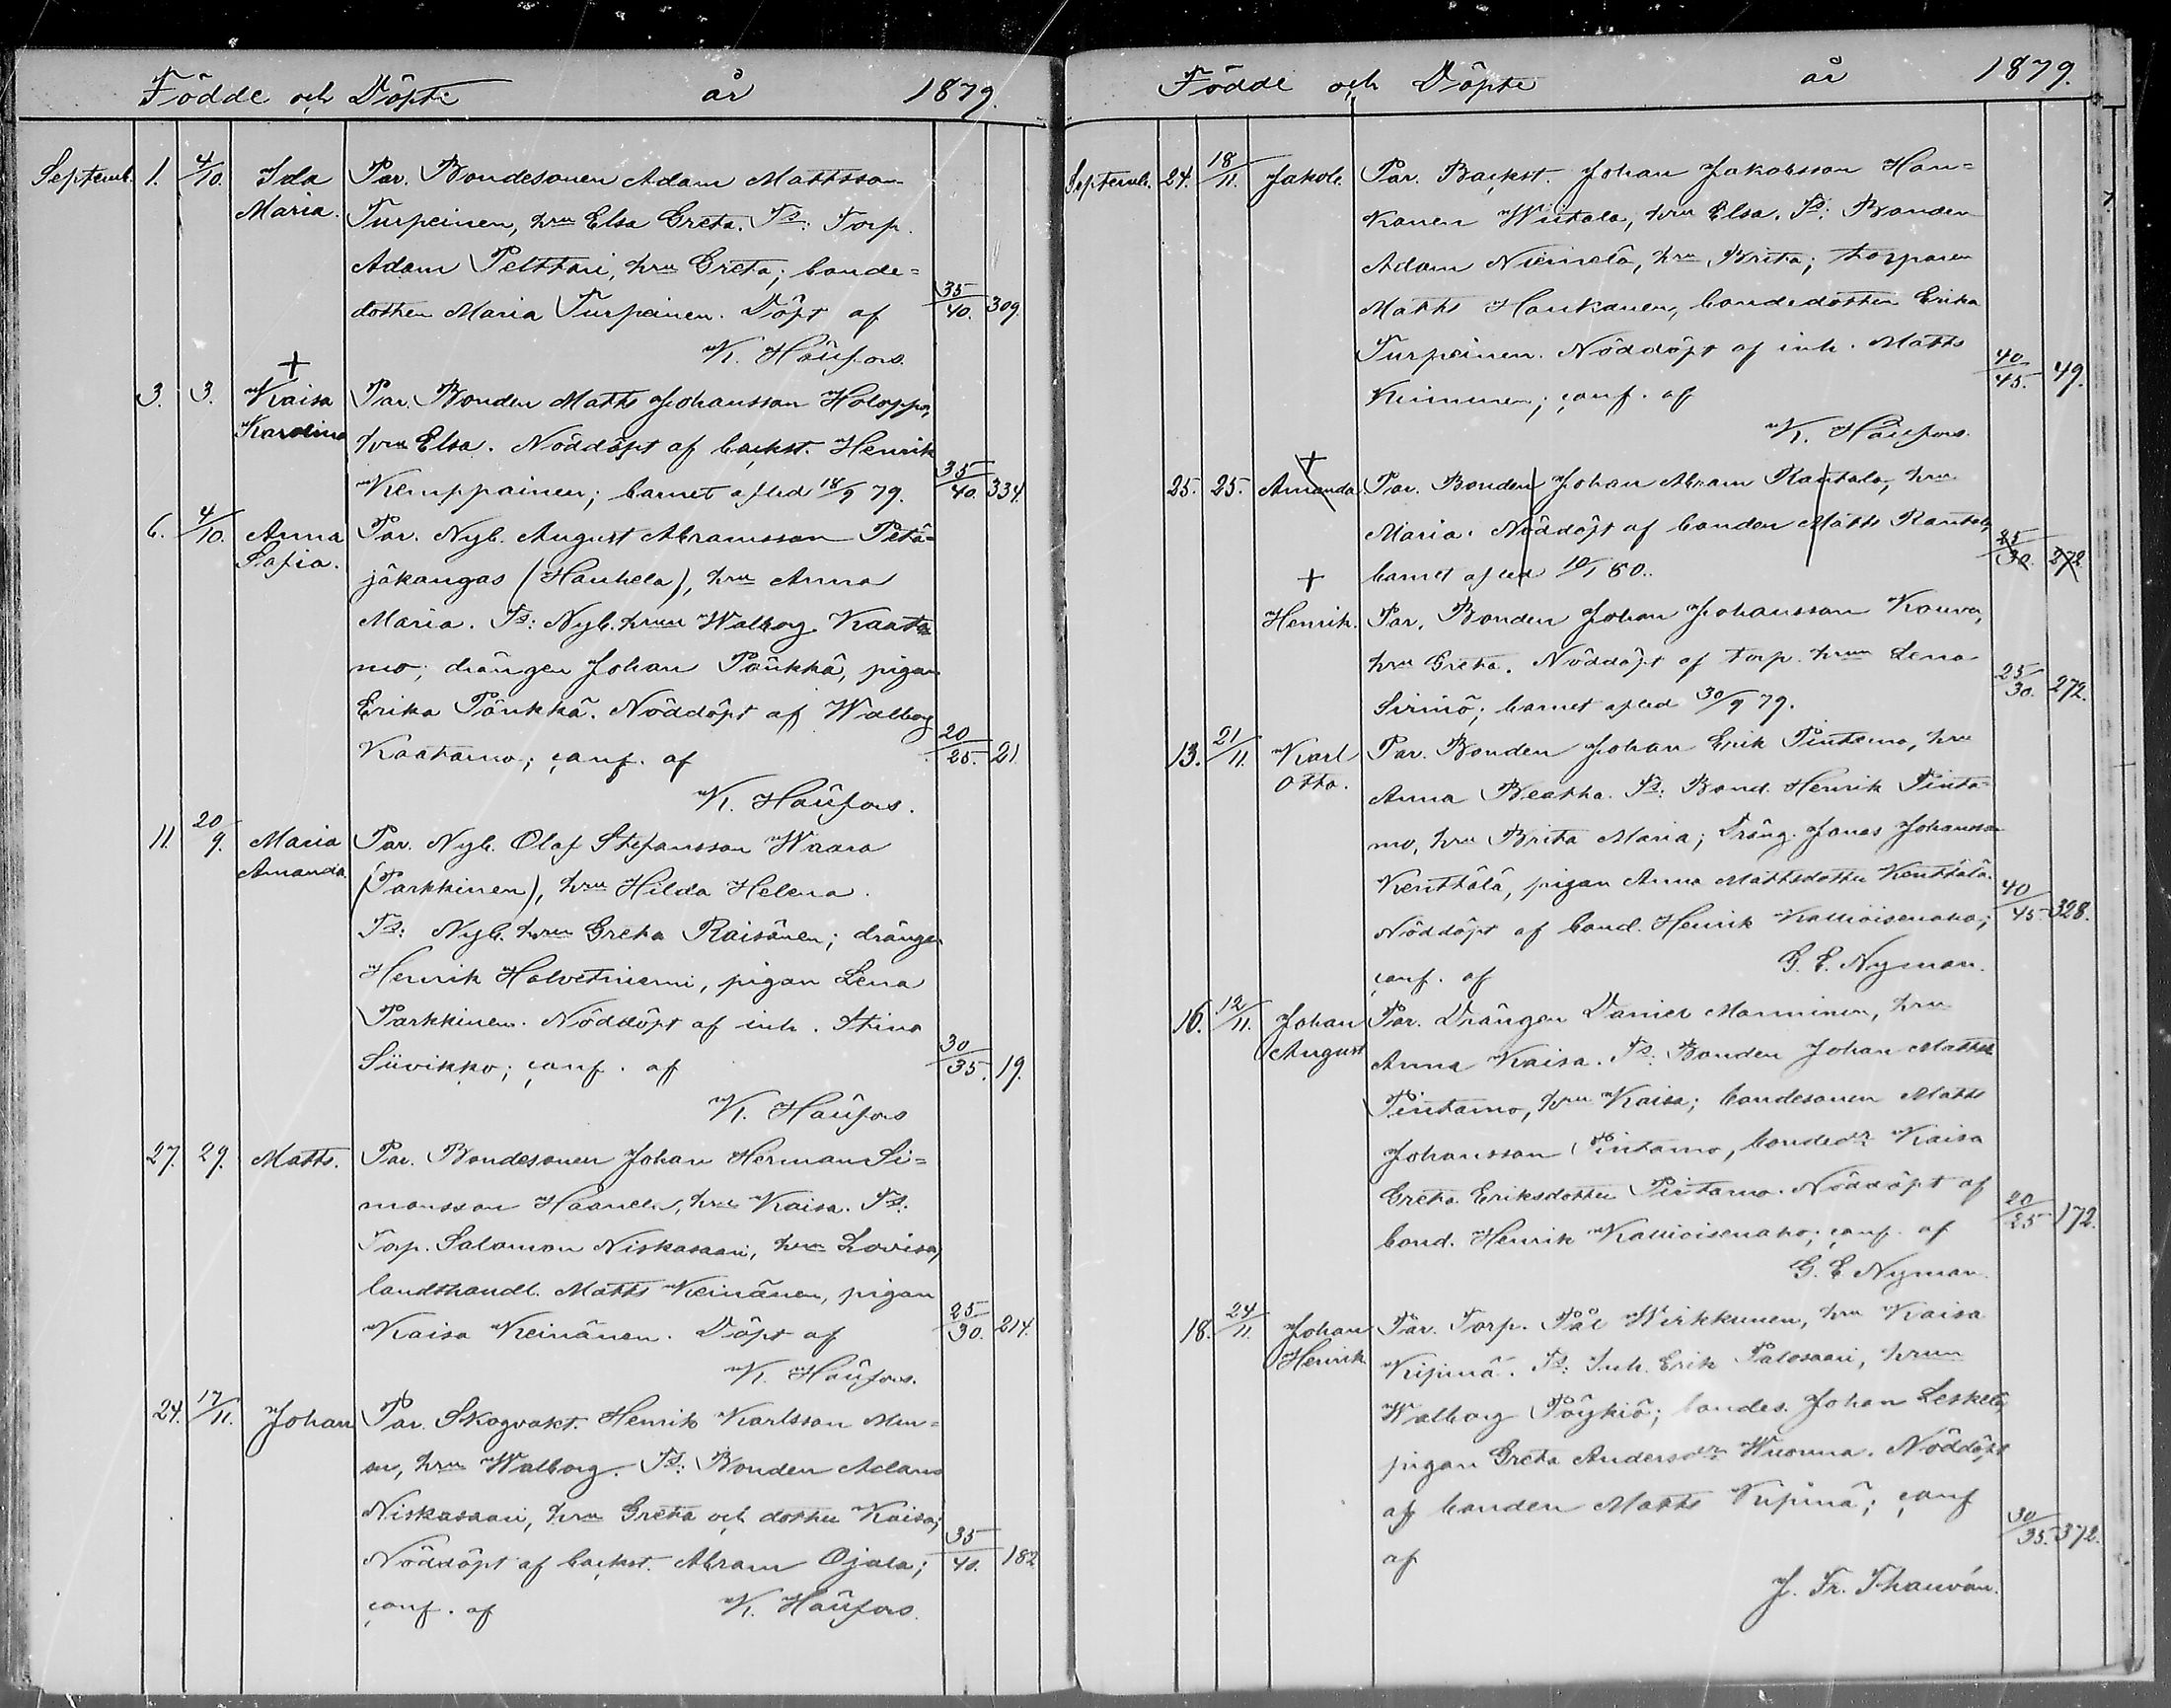 Födde och Döpte år 1879.
Septemb. 1. 4/10. Ida Par. Bondesonen Adam Mattsson
Maria. Turpeinen, hru Elsa Greta. Ts: Torp.
Adam Pelttari, hru Greta; bonde-
dottren Maria Turpeinen. Döpt af 35/40. 309.
K. Häufors.
+
3. 3. Kaisa Par. Bonden Matts Johansson Holappa,
Karolina hru Elsa. Nöddöpt af backst. Henrik
Kemppainen; barnet afled 18/9 79. 35/40. 334.
6. 4/10. Anna Par. Nyb. August Abramsson Petä-
Sofia. jäkangas (Hauhela), hru Anna
Maria. Ts: Nyb. hrun Walborg Kaata-
mo; drängen Johan Pänkkä, pigan
Erika Pänkkä. Nöddöpt af Walborg
Kaatamo; conf. af 20/25. 21.
K. Häufors.
11. 20/9. Maria Par. Nyb. Olof Stefansson Waara
Amanda. (Parkkinen), hru Hilda Helena.
Ts: Nyb. hru Greta Raisänen; drängen
Henrik Holvetniemi, pigan Lena
Parkkinen. Nöddöpt af inh. Stina
Siivikko; conf. af 30/35. 19.
K. Häufors
27. 29. Matts. Par. Bondesonen Johan Herman Si-
monsson Haanela, hru Kaisa. Ts:
Torp. Salomon Niskasaari, hru Lovisa,
landthandl. Matts Keinänen, pigan
Kaisa Keinänen. Döpt af 25/30. 214.
K. Häufors.
24. 17/11. Johan Par. Skogvakt. Henrik Karlsson Mur-
su, hru Walborg. Ts: Bonden Adam
Niskasaari, hru Greta och dotter Kaisa;
Nöddöpt af backst. Abram Ojala; 35/40. 182
conf. af K. Häufors.
Födde och Döpte år 1879.
Septemb. 24. 18/11. Jakob. Par. Backst. Johan Jakobsson Han-
kanen Wiitala, hru Elsa. Ts: Bonden
Adam Niemelä, hru Brita; torparen
Matts Haukanen, bondedottren Erika
Turpeinen. Nöddöpt af inh. Matts
Kinnunen; conf. af 40/45. 49.
K. Häufors.
+
25. 25. Amanda Par. Bonden Johan Abram Rantala, hru
Maria. Nöddöpt af bonden Matts Rantala, 25/30. 272.
barnet afled 10/1 80.
+
Henrik. Par. Bonden Johan Johansson Kouva,
hru Greta. Nöddöpt af torp. hrun Lena
Sirniö; barnet afled 30/9 79. 25/30. 272.
13. 21/11. Karl Par. Bonden Johan Erik Pintamo, hru
Otto. Anna Beatha. Ts: Bond. Henrik Pinta-
mo, hru Brita Maria; Dräng. Jonas Johansson
Kenttälä, pigan Anna Mattsdotter Kenttälä.
Nöddöpt af bond. Henrik Kallioisenaho; 40/45. 328.
conf. af G. E. Nyman.
16. 12/11. Johan Par. Drängen Daniel Manninen, hru
August Anna Kaisa. Ts: Bonden Johan Mattss.
Pintamo, hru Kaisa; bondesonen Matts
Johansson Pintamo, bondedr Kaisa
Greta Eriksdotter Pintamo. Nöddöpt af
bond. Henrik Kallioisenaho; conf. af 20/25 172.
G. E. Nyman.
18. 24/11. Johan Par. Torp. Pål Wirkkunen, hru Kaisa
Henrik Kipinä. Ts: Inh. Erik Palosaari, hrun
Walborg Pöykiö; bondes. Johan Leskelä,
pigan Greta Andersdr Wuorma. Nöddöpt
af bonden Matts Kipinä; conf
af 30/35. 372.
J. Fr. Thauvón.